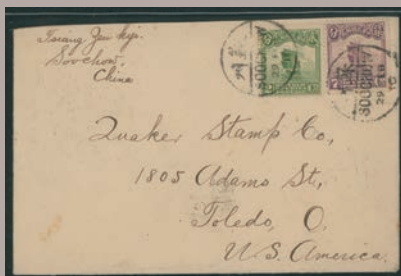 Tsiang Zen Kyi.
Soochow.
China
SOOCHOW
29
SOOCHOW
29 FEB
Quaker Stamp Co,
1805 Adams St,
Toledo, O,
U.S. America.